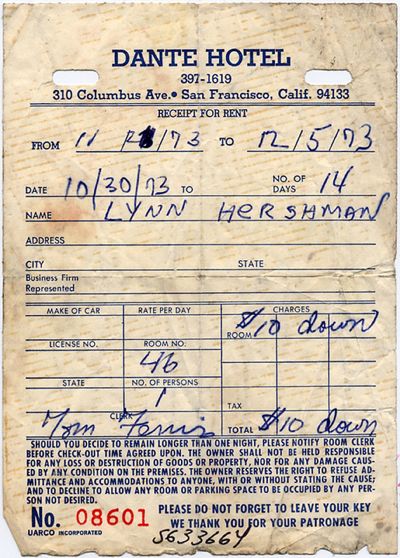 DANTE HOTEL
397-1619
310 Columbus Ave. • San Francisco, Calif. 94133
RECEIPT FOR RENT
FROM 11 /73 TO 12/5/73
DATE 10/30/73 TO NO. OF DAYS 14
NAME LYNN HERSHMAN
ADDRESS
CITY STATE
Business Firm Represented
MAKE OF CAR RATE PER DAY CHARGES
ROOM $10 down
LICENSE NO. ROOM NO.
46
STATE NO. OF PERSONS
1
TAX
CLERK Tom Ferris TOTAL $10 down
SHOULD YOU DECIDE TO REMAIN LONGER THAN ONE NIGHT, PLEASE NOTIFY ROOM CLERK
BEFORE CHECK-OUT TIME AGREED UPON. THE OWNER SHALL NOT BE HELD RESPONSIBLE
FOR ANY LOSS OR DESTRUCTION OF GOODS OR PROPERTY, NOR FOR ANY DAMAGE CAUS-
ED BY ANY CONDITION ON THE PREMISES. THE OWNER RESERVES THE RIGHT TO REFUSE AD-
MITTANCE AND ACCOMMODATIONS TO ANYONE, WITH OR WITHOUT STATING THE CAUSE;
AND TO DECLINE TO ALLOW ANY ROOM OR PARKING SPACE TO BE OCCUPIED BY ANY PER-
SON NOT DESIRED.
No. 08601 PLEASE DO NOT FORGET TO LEAVE YOUR KEY
WE THANK YOU FOR YOUR PATRONAGE
UARCO INCORPORATED
5633664